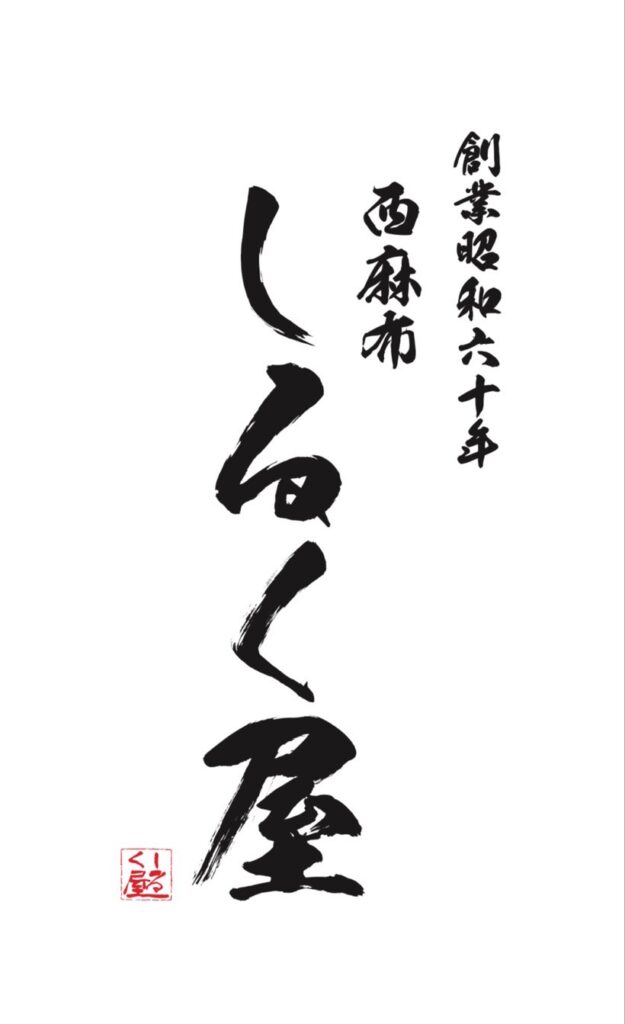 創業昭和六十年
西麻布
しるく屋
しる
く屋